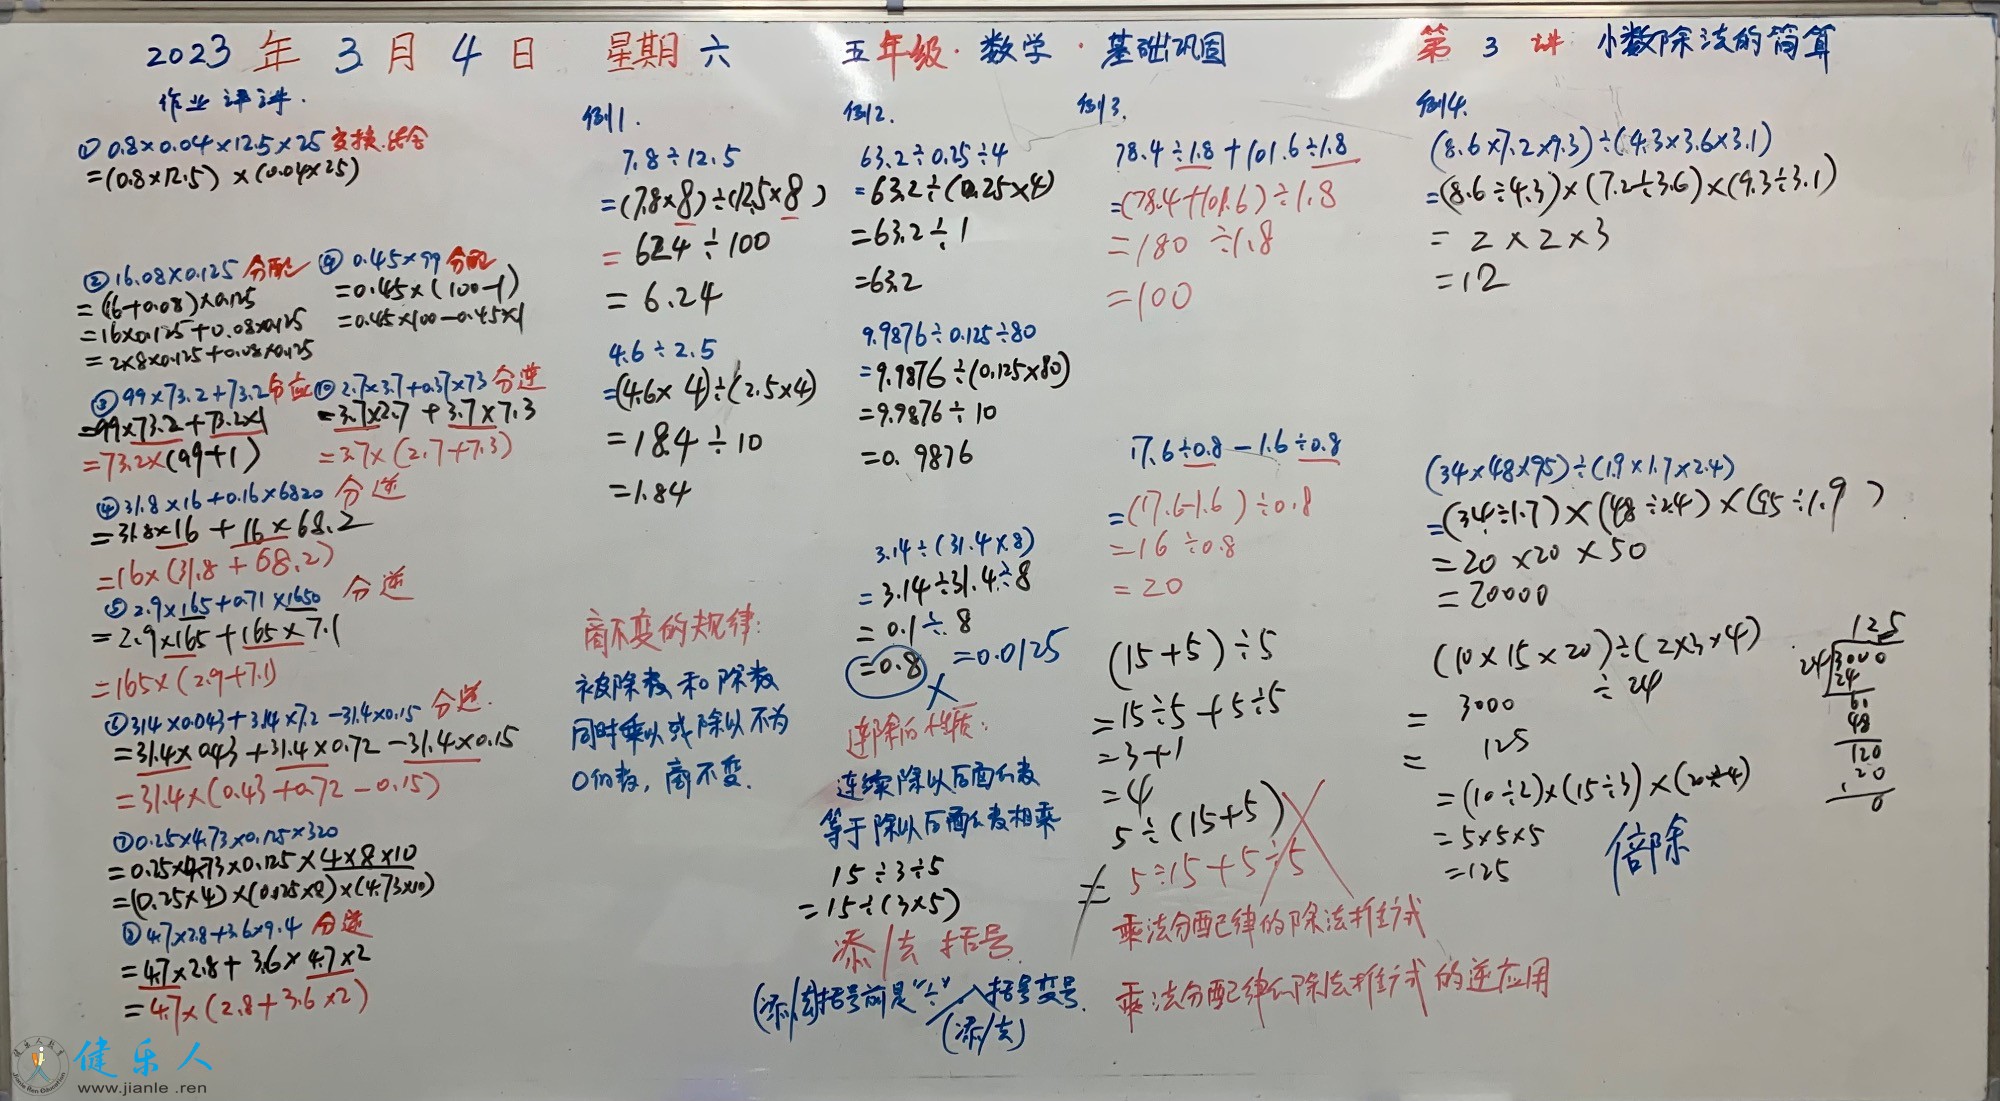 2023 年 3 月 4 日 星期六 五年级·数学·基础巩固 第 3 讲 小数除法的简算
作业评讲.
① 0.8×0.04×12.5×25 交换.结合
=(0.8×12.5)×(0.04×25)
② 16.08×0.125 分配
=(16+0.08)×0.125
=16×0.125+0.08×0.125
=2×8×0.125+0.08×0.125
⑨ 0.45×99 分配
=0.45×(100-1)
=0.45×100-0.45×1
③ 99×73.2+73.2 分应
=99×73.2+73.2×1
=73.2×(99+1)
⑩ 2.7×3.7+0.37×73 分逆
=3.7×2.7+3.7×7.3
=3.7×(2.7+7.3)
④ 31.8×16+0.16×6820 分逆
=31.8×16+16×68.2
=16×(31.8+68.2)
⑤ 2.9×165+0.71×1650 分逆
=2.9×165+165×7.1
=165×(2.9+7.1)
⑥ 31.4×0.43+3.14×7.2-31.4×0.15 分逆.
=31.4×0.43+31.4×0.72-31.4×0.15
=31.4×(0.43+0.72-0.15)
⑦ 0.25×4.73×0.125×320
=0.25×4.73×0.125×4×8×10
=(0.25×4)×(0.125×8)×(4.73×10)
⑧ 4.7×2.8+3.6×9.4 分逆
=4.7×2.8+3.6×4.7×2
=4.7×(2.8+3.6×2)
例1.
7.8÷12.5
=(7.8×8)÷(12.5×8)
=62.4÷100
=6.24
4.6÷2.5
=(4.6×4)÷(2.5×4)
=18.4÷10
=1.84
商不变的规律:
被除数和除数
同时乘以或除以不为
0的数,商不变.
例2.
63.2÷0.25÷4
=63.2÷(0.25×4)
=63.2÷1
=63.2
9.9876÷0.125÷80
=9.9876÷(0.125×80)
=9.9876÷10
=0.9876
3.14÷(31.4×8)
=3.14÷31.4÷8
=0.1÷8
=0.8 =0.0125
×
连除的性质:
连续除以后面的数
等于除以后面的数相乘
15÷3÷5
=15÷(3×5)
添/去括号
(添/去)括号前是"÷",括号变号.
(添/去)
例3.
78.4÷1.8+101.6÷1.8
=(78.4+101.6)÷1.8
=180÷1.8
=100
17.6÷0.8-1.6÷0.8
=(17.6-1.6)÷0.8
=16÷0.8
=20
(15+5)÷5
=15÷5+5÷5
=3+1
=4
5÷(15+5)
≠5÷15+5÷5
乘法分配律的除法推广式
乘法分配律的除法推广式的逆应用
例4.
(8.6×7.2×9.3)÷(4.3×3.6×3.1)
=(8.6÷4.3)×(7.2÷3.6)×(9.3÷3.1)
=2×2×3
=12
(34×48×95)÷(1.9×1.7×2.4)
=(34÷1.7)×(48÷2.4)×(95÷1.9)
=20×20×50
=20000
(10×15×20)÷(2×3×4)
= 3000 ÷24
= 125
=(10÷2)×(15÷3)×(20÷4)
=5×5×5
=125
倍除
125
24 3000
24
60
48
120
120
0
健乐人
www.jianle.ren